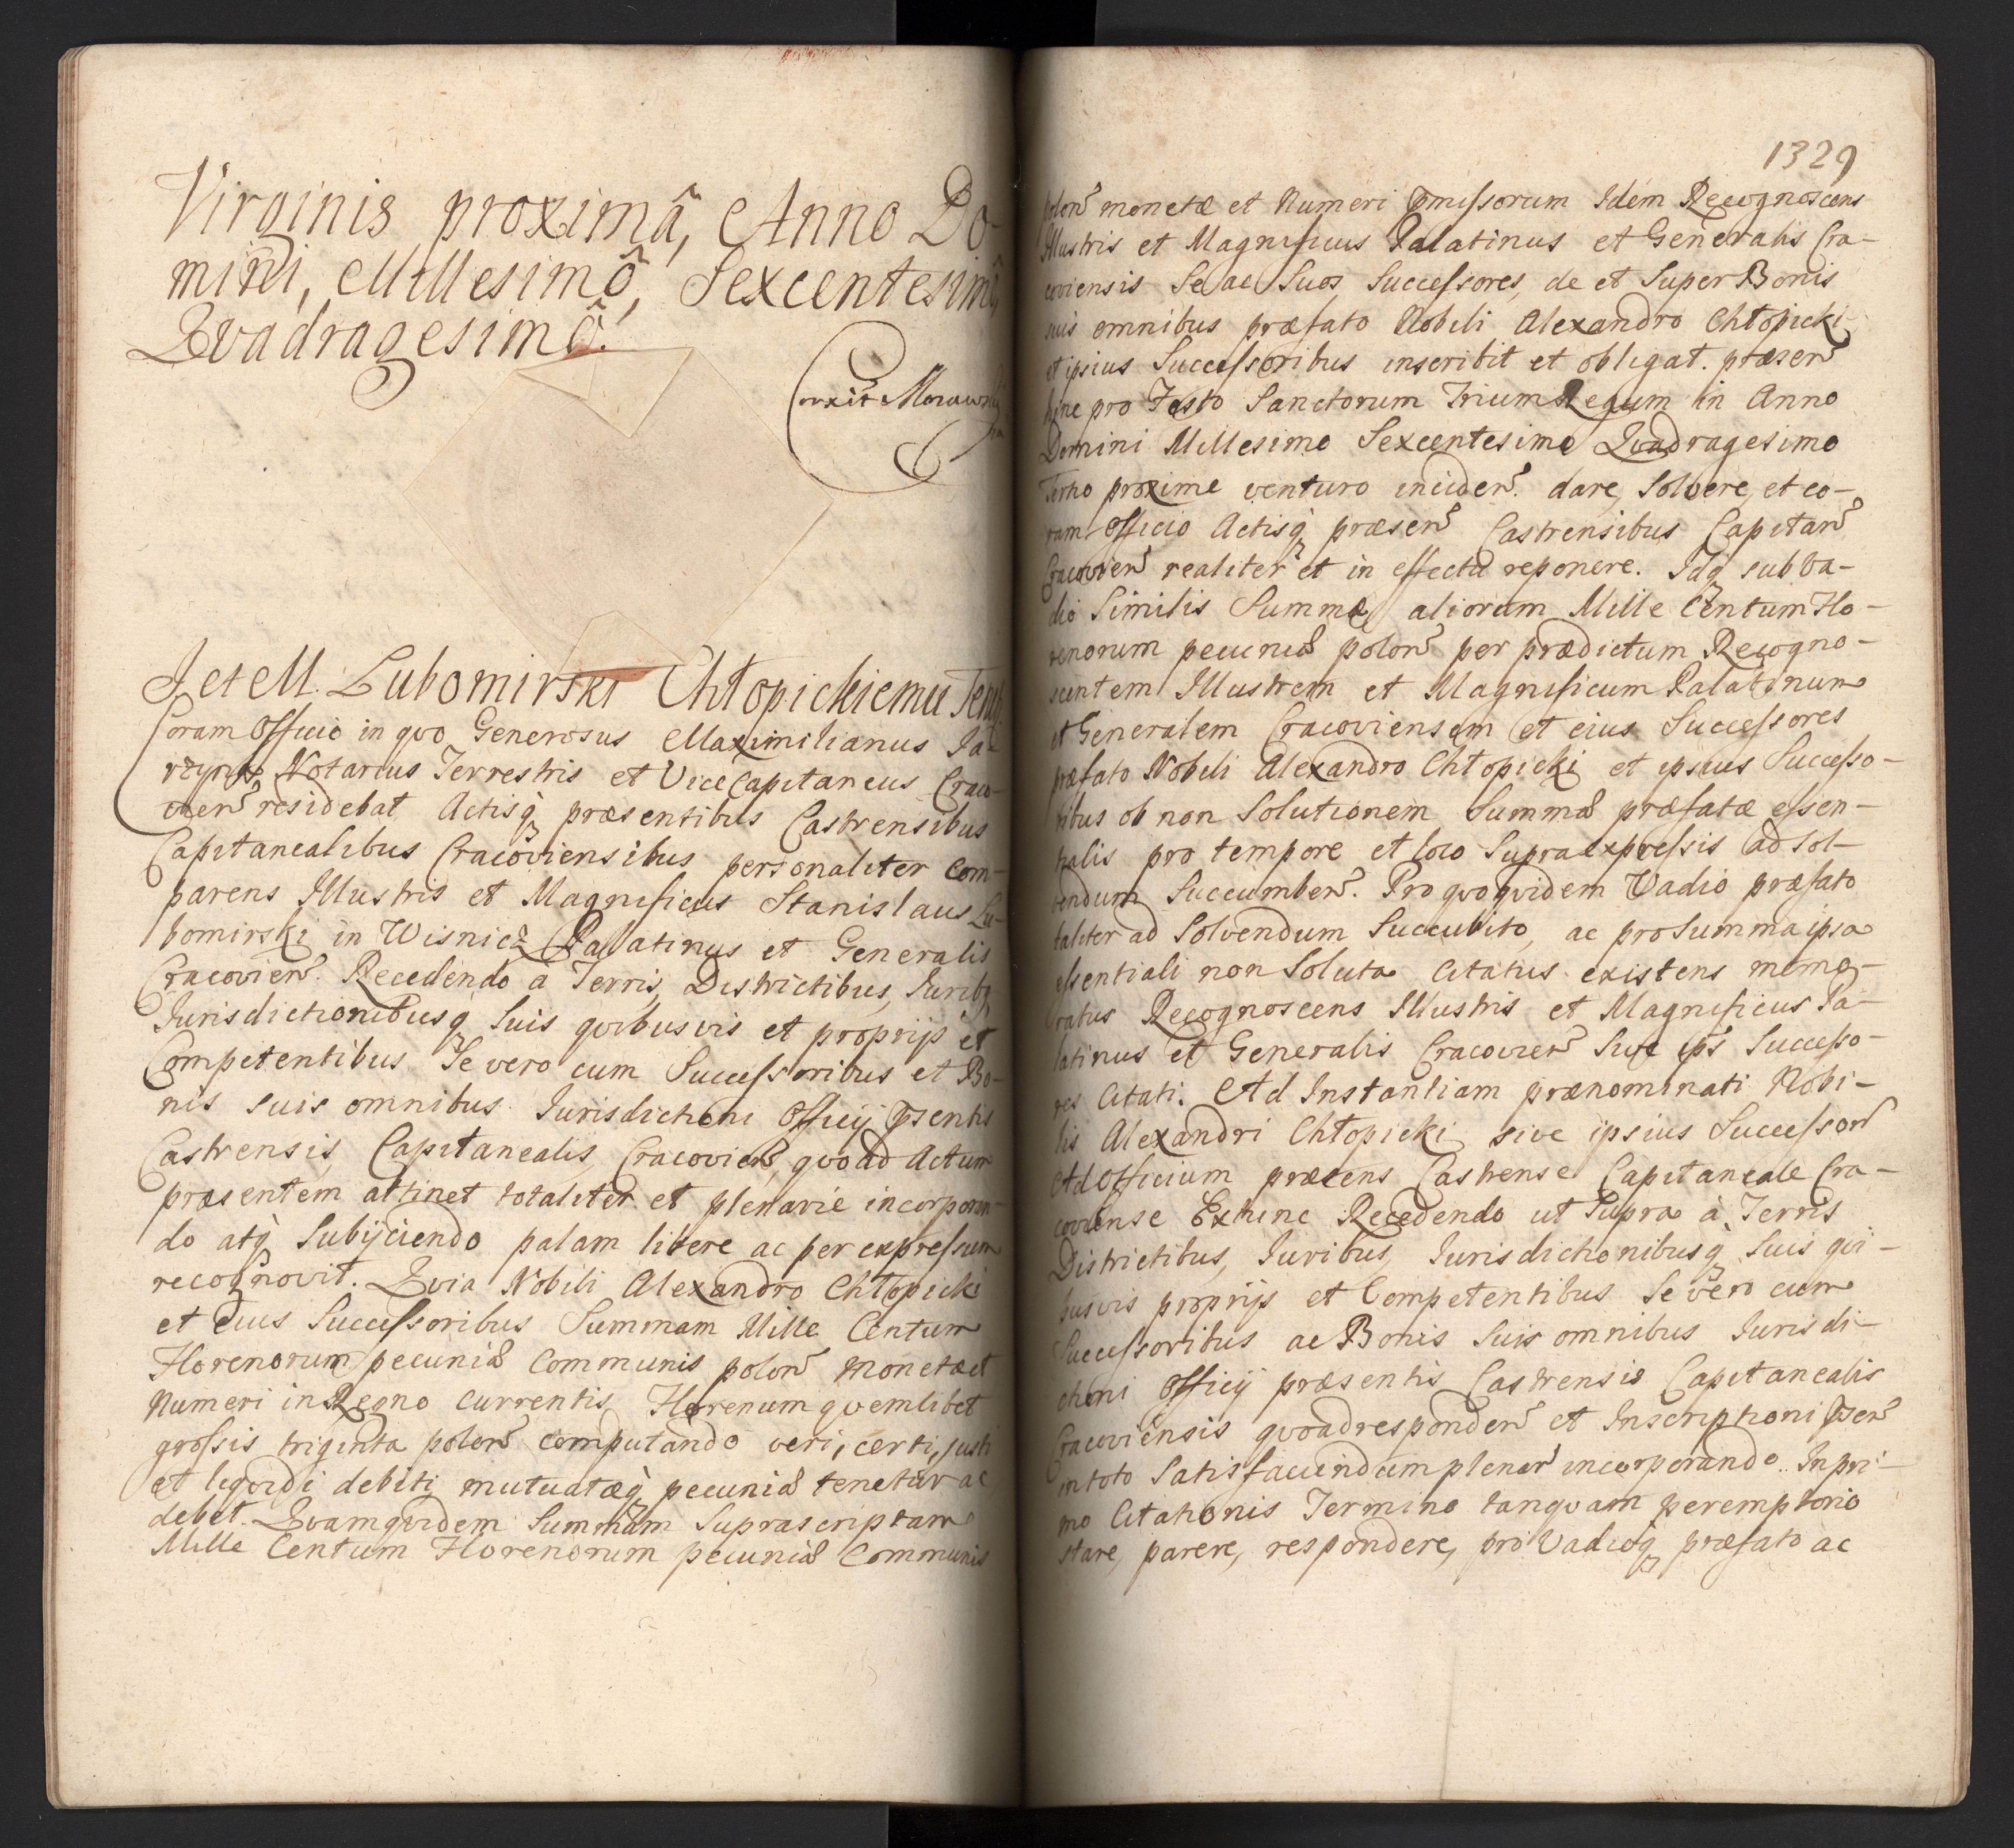 Virginis proximâ, Anno Do-
mini, Millesimô, Sexcentesimô,
Qvadragesimô.
Corxit Morawski
I et M. Lubomirski Chłopickiemu Tenet.
Coram Officio in qvo Generosus Maximilianus Ja-
rzyna Notarius Terrestris et ViceCapitaneus Craco-
vien̄ residebat Actisq̨ præsentibus Castrensibus
Capitanealibus Cracoviensibus personaliter com-
parens Illustris et Magnificus Stanislaus Lu-
bomirski in Wisnicz Palatinus et Generalis
Cracovien̄. Recedendo a Terris, Districtibus, Iuribq̨
Iurisdictionibusq̨ suis qvibusvis et proprijs et
Competentibus Se vero cum Successoribus et Bo-
nis suis omnibus Iurisdictioni Officij p̄sentis
Castrensis, Capitanealis, Cracovien̄, qvoad Actum
præsentem attinet totaliter et plenarie incorporan-
do atq̨ Subijciendo palam libere ac per expressum
recognovit. Qvia Nobili Alexandro Chłopicki
et eius Successoribus Summam Mille Centum
Florenorum pecuniæ Communis polon̄ monetæ et
Numeri in Regno Currentis, Florenum qvemlibet
grossis triginta polon̄ computando veri, certi, justi
et liqvidi debiti mutuatæq̨ pecuniæ tenetur ac
debet. Qvamqvidem Summam Suprascriptam
Mille Centum Florenorum pecuniæ Communis
1329
polon̄ monetæ et Numeri p̄missorum Idem Recognoscens
Illustris et Magnificus Palatinus et Generalis Cra-
coviensis Se ac Suos Successores, de et Super Bonis
suis omnibus præfato Nobili Alexandro Chłopicki
et ipsius Successoribus inscribit et obligat. præsen̄
hinc pro Festo Sanctorum Trium Regum in Anno
Domini Millesimo Sexcentesimo Qvadragesimo
Tertio proxime venturo inciden̄. dare, Solvere, et co-
ram Officio Actisq̨ præsen̄ Castrensibus Capitan̄
Cracovien̄ realiter et in effectu reponere. Idq̨ sub va-
dio Similis Summæ aliorum Mille Centum Flo-
renorum pecuniæ polon̄ per prædictum Recogno-
scentem Illustrem et Magnificum Palatinum
et Generalem Cracoviensem et eius Successores
præfato Nobili Alexandro Chłopicki et ipsius Successo-
ribus ob non Solutionem Summæ præfatæ essen-
tialis pro tempore et loco Supraexpressis ad Sol-
vendum Succumben̄. Pro qvoqvidem Vadio præfato
taliter ad Solvendum Succubito, ac pro Summa ipsa
essentiali non Soluta Citatus existens memo-
ratus Recognoscens Illustris et Magnificus Pa-
latinus et Generalis Cracovien̄ Sive ip̄s Successo-
res Citati. Ad Instantiam prænominati Nobi-
lis Alexandri Chłopicki sive ipsius Successor̄
Ad Officium præsens Castrense Capitaneale Cra-
coviense Exhinc Recedendo ut Supra à Terris
Districtibus, Iuribus, Iurisdictionibusq̨ Suis qvi-
busvis proprijs et Competentibus Se vero cum
Successoribus ac Bonis Suis omnibus Iurisdi-
ctioni Officij præsentis Castrensis Capitanealis
Cracoviensis qvoad responden̄ et Inscriptioni p̄sen̄
in toto Satisfaciendum plenar̄ incorporando. In pri-
mo Citationis Termino tanqvam peremptorio
stare, parere, respondere, pro Vadioq̨ præfato ac